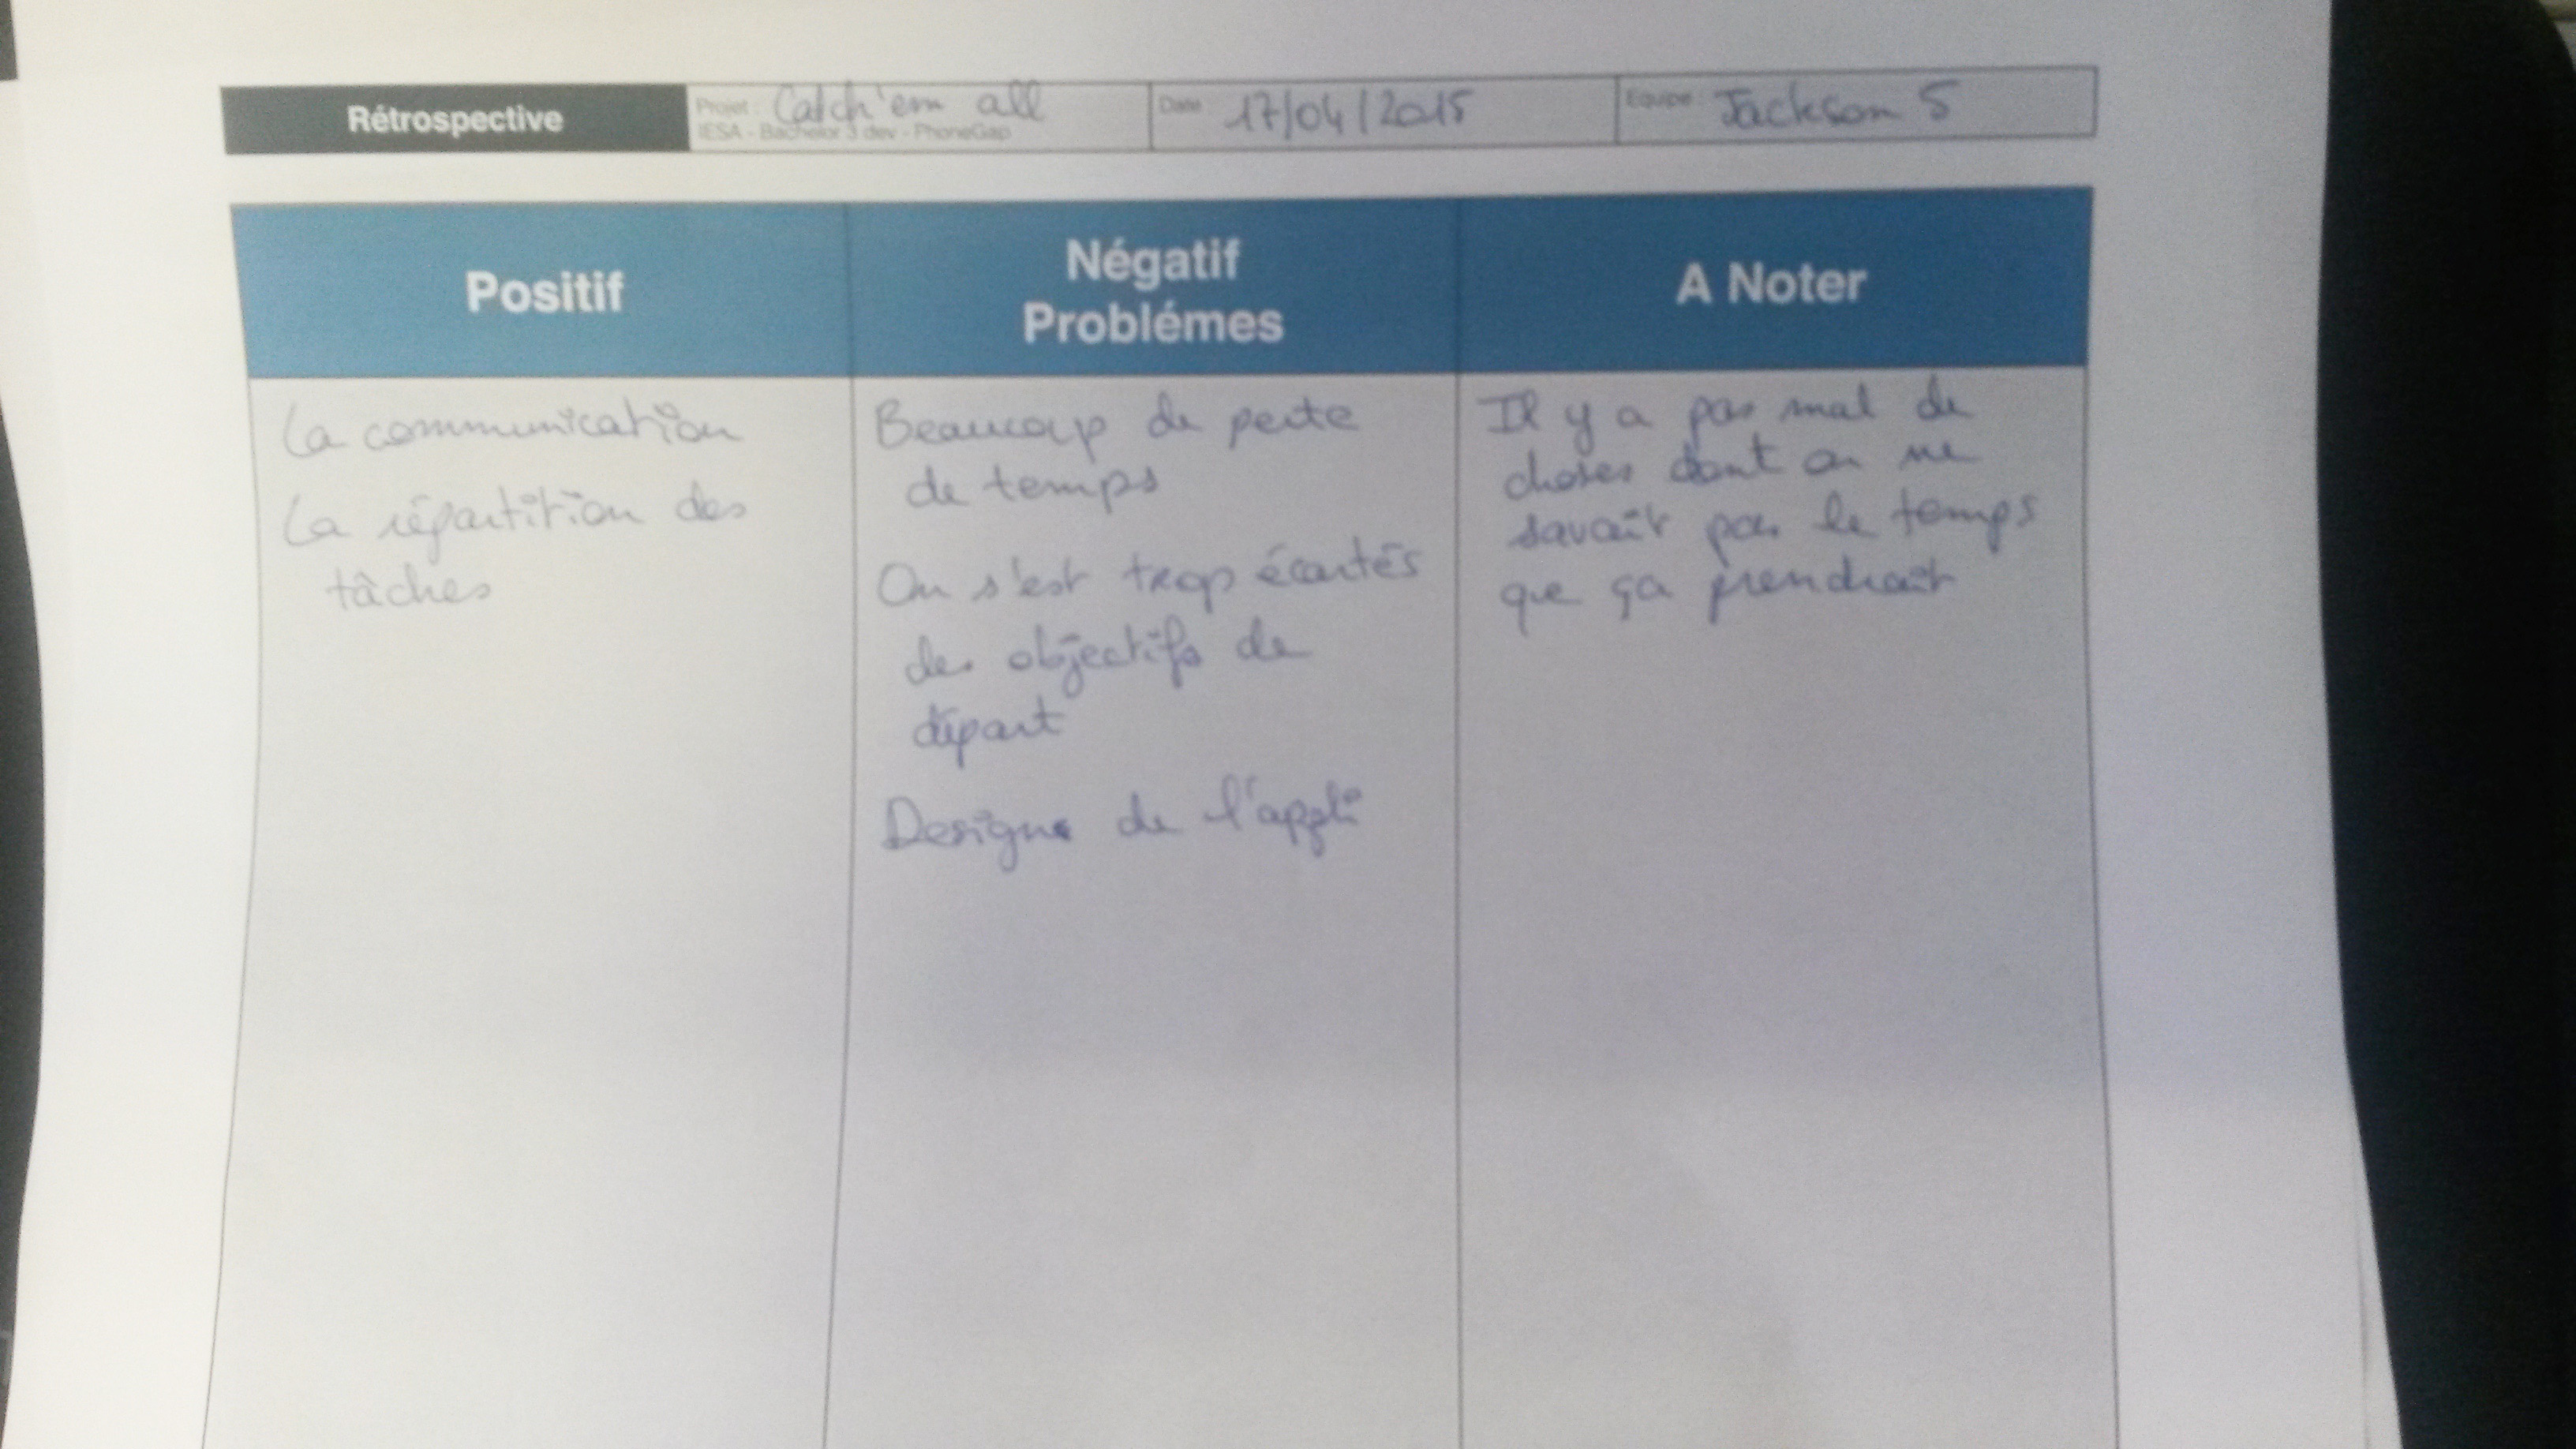 Rétrospective
Projet : Catch'em all
IESA - Bachelor 3 dev - PhoneGap
Date 17/04/2015
Equipe : Jackson 5
Positif
Négatif
Problémes
A Noter
La communication
La répartition des
tâches
Beaucoup de perte
de temps
On s'est trop écartés
des objectifs de
départ
Design de l'appli
Il y a pas mal de
choses dont on ne
savait pas le temps
que ça prendrait